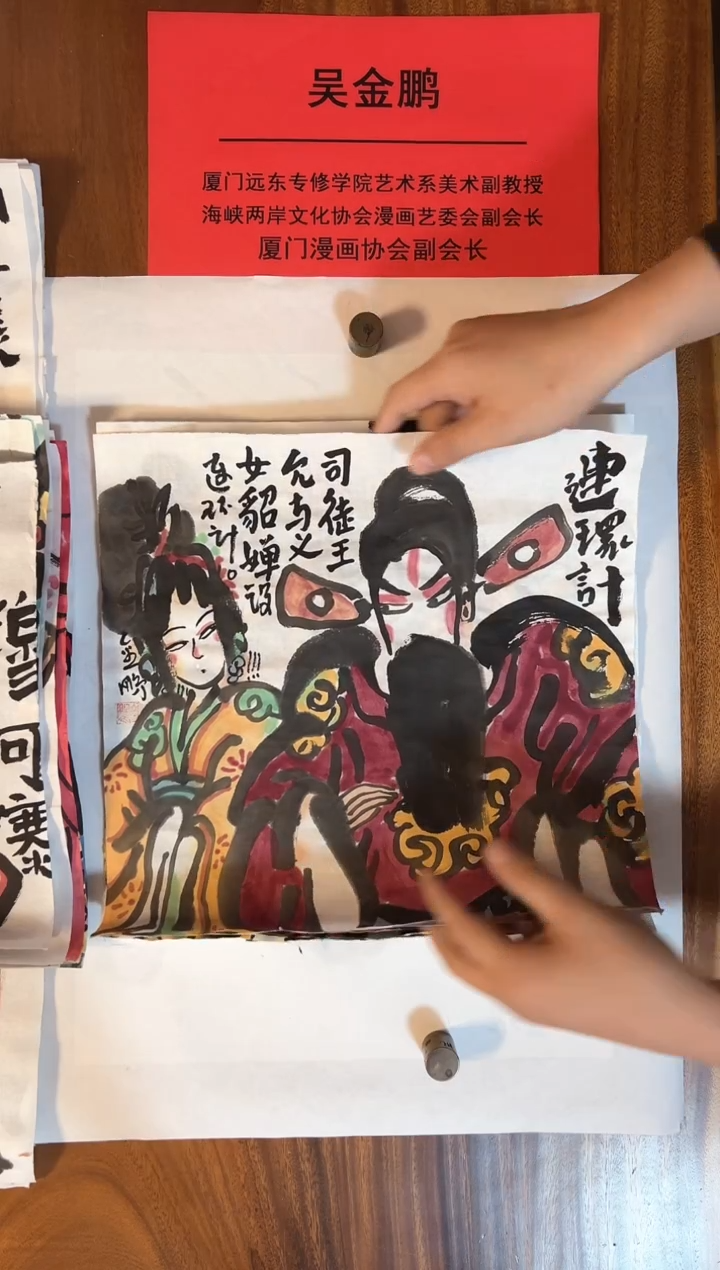 吴金鹏
厦门远东专修学院艺术系美术副教授
海峡两岸文化协会漫画艺委会副会长
厦门漫画协会副会长
連環計
司徒王
允与义
女貂蝉设
连环计。
!!!